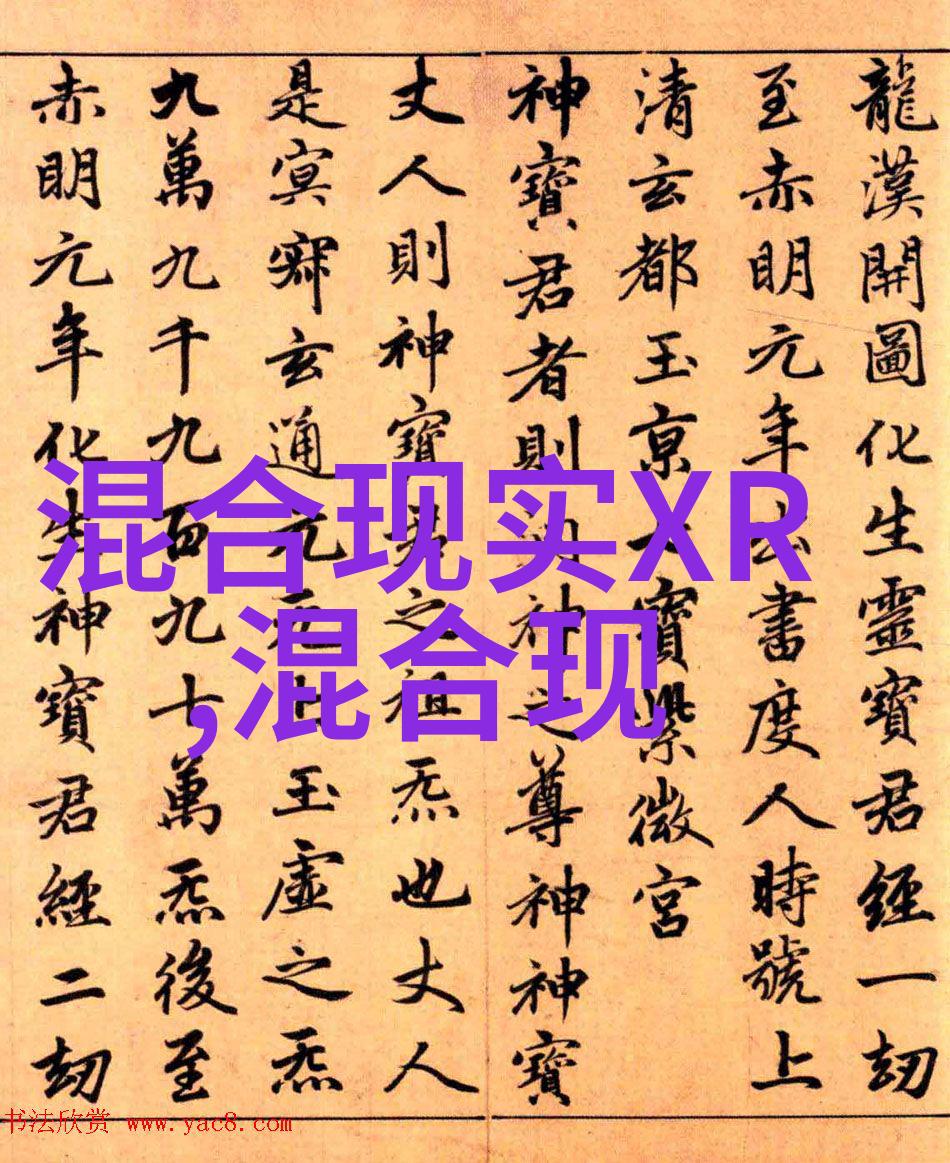 龍漢開圖化生靈寶君經一劫
至赤明元年出書度人時號上
清玄都玉京七寶紫微宮
神寶君者則洞神之尊神神寶
丈人則神寶君之祖炁也丈人
是冥寂玄通元无上玉虛之炁
九萬九千九百九十萬炁後至
赤明元年化生神寶君經二劫
混合现实XR
,混合现
书法欣赏 www.yac8.com